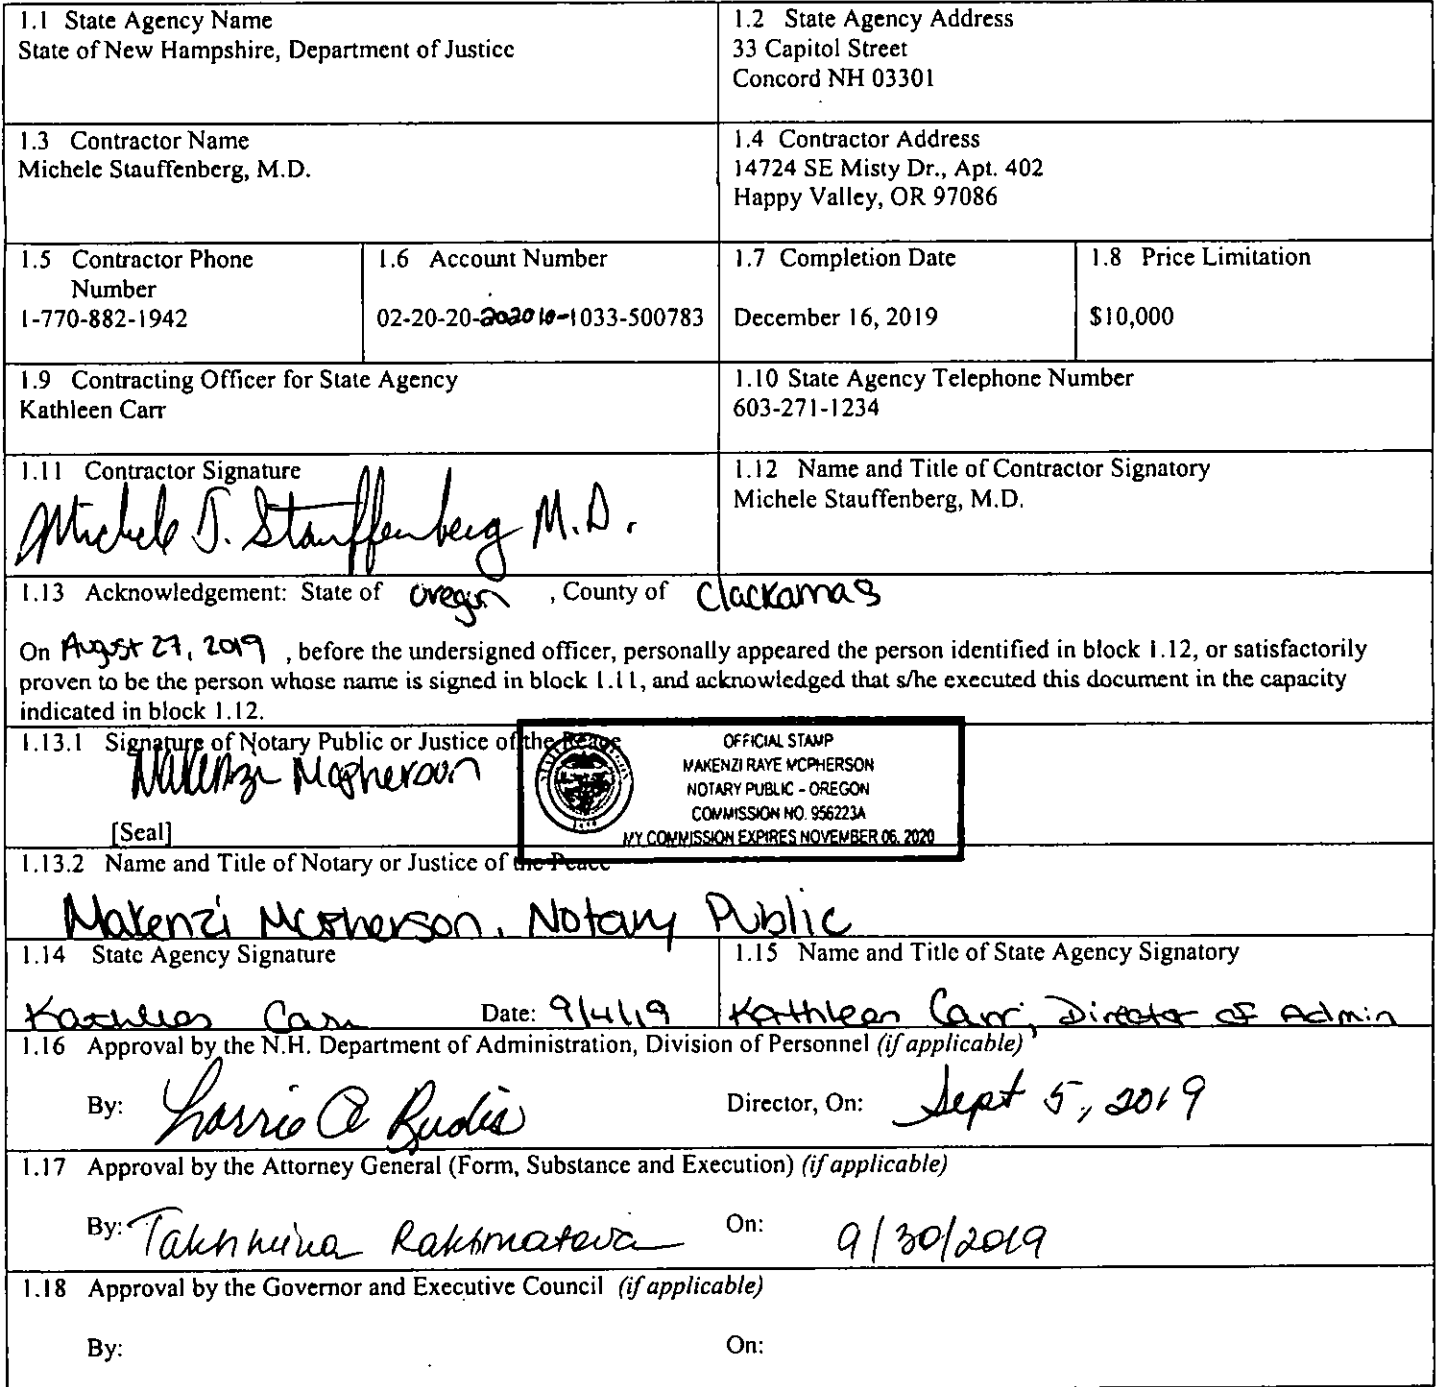 1.1 State Agency Name
State of New Hampshire, Department of Justice
1.2 State Agency Address
33 Capitol Street
Concord NH 03301
1.3 Contractor Name
Michele Stauffenberg, M.D.
1.4 Contractor Address
14724 SE Misty Dr., Apt. 402
Happy Valley, OR 97086
1.5 Contractor Phone
Number
1-770-882-1942
1.6 Account Number
02-20-20-202010-1033-500783
1.7 Completion Date
December 16, 2019
1.8 Price Limitation
$10,000
1.9 Contracting Officer for State Agency
Kathleen Carr
1.10 State Agency Telephone Number
603-271-1234
1.11 Contractor Signature
Michele T. Stauffenberg M.D.
1.12 Name and Title of Contractor Signatory
Michele Stauffenberg, M.D.
1.13 Acknowledgement: State of Oregon , County of Clackamas
On August 27, 2019 , before the undersigned officer, personally appeared the person identified in block 1.12, or satisfactorily
proven to be the person whose name is signed in block 1.11, and acknowledged that s/he executed this document in the capacity
indicated in block 1.12.
1.13.1 Signature of Notary Public or Justice of the Peace
Makenzi Mcpherson
[Seal]
OFFICIAL STAMP
MAKENZI RAYE MCPHERSON
NOTARY PUBLIC - OREGON
COMMISSION NO. 956223A
MY COMMISSION EXPIRES NOVEMBER 06, 2020
1.13.2 Name and Title of Notary or Justice of the Peace
Makenzi McPherson, Notary Public
1.14 State Agency Signature
Kathleen Carr Date: 9/4/19
1.15 Name and Title of State Agency Signatory
Kathleen Carr, Director of Admin
1.16 Approval by the N.H. Department of Administration, Division of Personnel (if applicable)
By: Lorrie A Rudis Director, On: Sept 5, 2019
1.17 Approval by the Attorney General (Form, Substance and Execution) (if applicable)
By: Takhmina Rakhmatova On: 9/30/2019
1.18 Approval by the Governor and Executive Council (if applicable)
By: On: